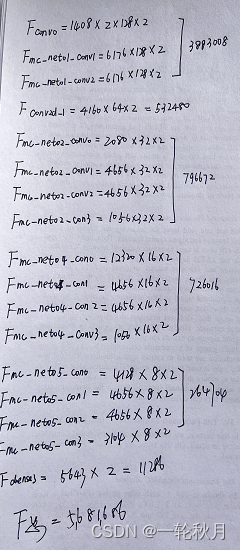 Fconv0 = 1408 × 2 × 128 × 2
Fmc_net01_conv1 = 6176 × 128 × 2
Fmc_net01_conv2 = 6176 × 128 × 2
3883008
Fconv2d-1 = 4160 × 64 × 2 = 532480
Fmc_net02_conv0 = 2080 × 32 × 2
Fmc_net02_conv1 = 4656 × 32 × 2
Fmc_net02_conv2 = 4656 × 32 × 2
Fmc_net02_con3 = 1056 × 32 × 2
796672
Fmc_net04_con0 = 12320 × 16 × 2
Fmc_net04_con1 = 4656 × 16 × 2
Fmc_net04_con2 = 4656 × 16 × 2
Fmc_net04_conv3 = 1056 × 16 × 2
726016
Fmc_net05_con0 = 4128 × 8 × 2
Fmc_net05_con1 = 4656 × 8 × 2
Fmc_net05_con2 = 4656 × 8 × 2
Fmc_net05_con3 = 3104 × 8 × 2
264704
Fdense3 = 5643 × 2 = 11286
F总 = 5681686
CSDN @一轮秋月